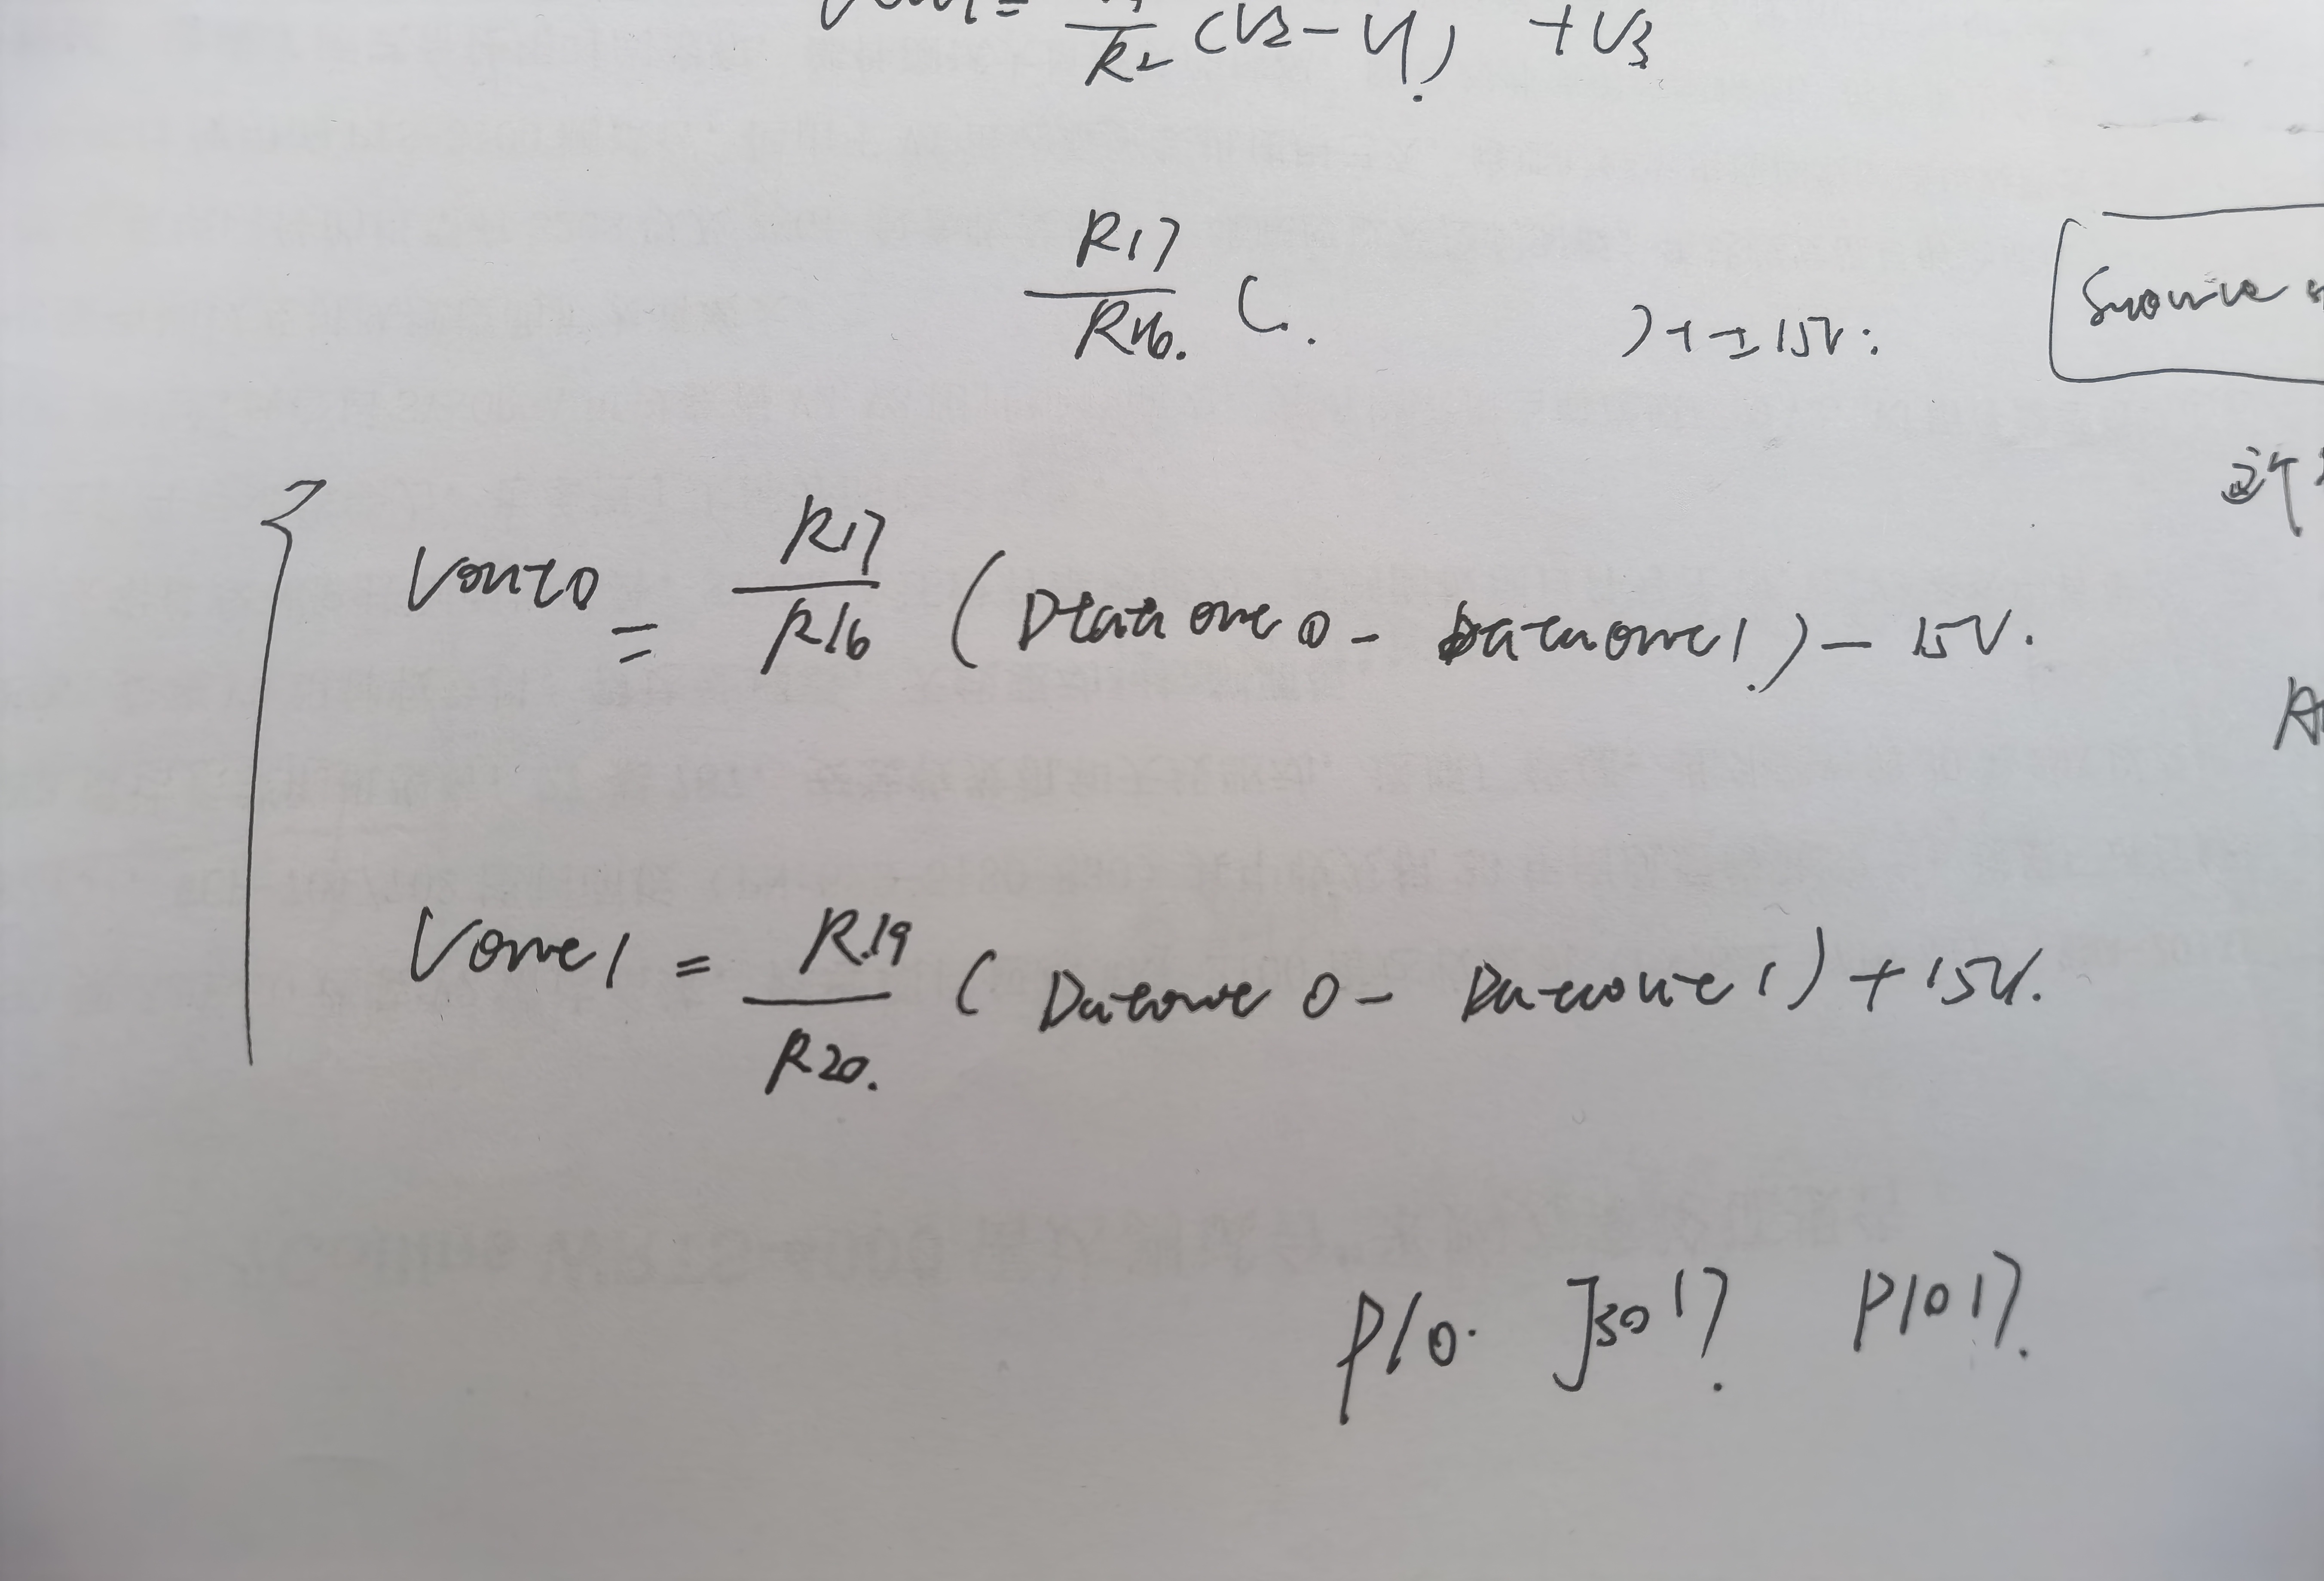 Vout = R2 (V2 - V1) + V3
R17
R16. ( . ) + ±15V.
Vout0 = R17 / R16 (Dataout0 - Dataout1) - 15V.
Vout1 = R19 / R20. (Dataout0 - Dataout1) + 15V.
Source
这个
P10. J3017. P1017.